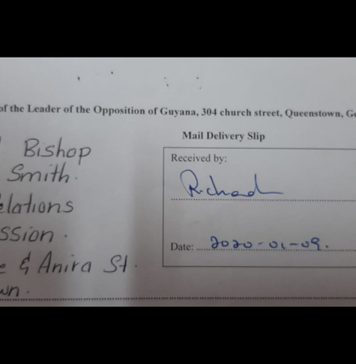 of the Leader of the Opposition of Guyana, 304 church street, Queenstown, Ge
Mail Delivery Slip
Bishop
Smith.
elations
ssion.
e & Anira St.
wn.
Received by:
Richad
Date: 2020-01-09.